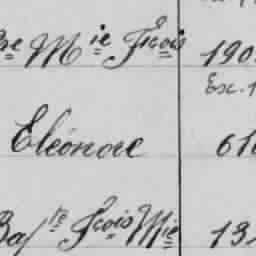 Mie Fcois 190
Esc. 1
Eléonore 61
Fcois Mie 13